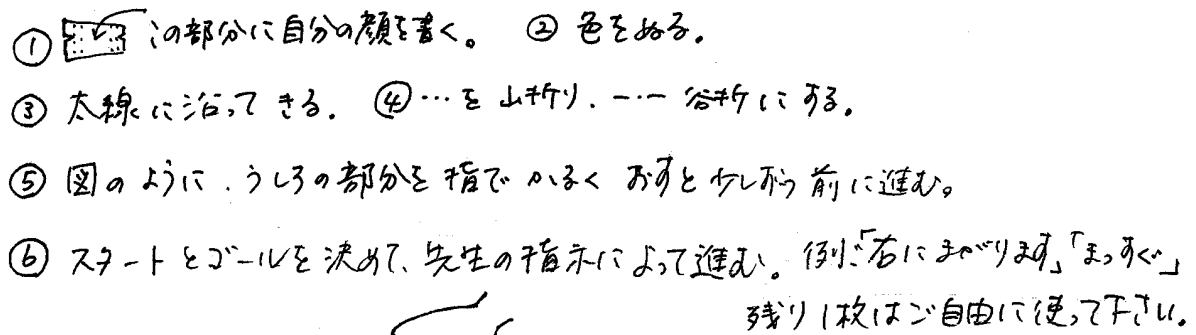 ① この部分に自分の顔を書く。 ② 色をぬる。
③ 太線に沿ってきる。 ④ …を山折り、－・－谷折にする。
⑤ 図のように、うしろの部分を指でかるくおすと少しずつ前に進む。
⑥ スタートとゴールを決めて、先生の指示によって進む。例:「右にまがります」「まっすぐ」
残り1枚はご自由に使って下さい。